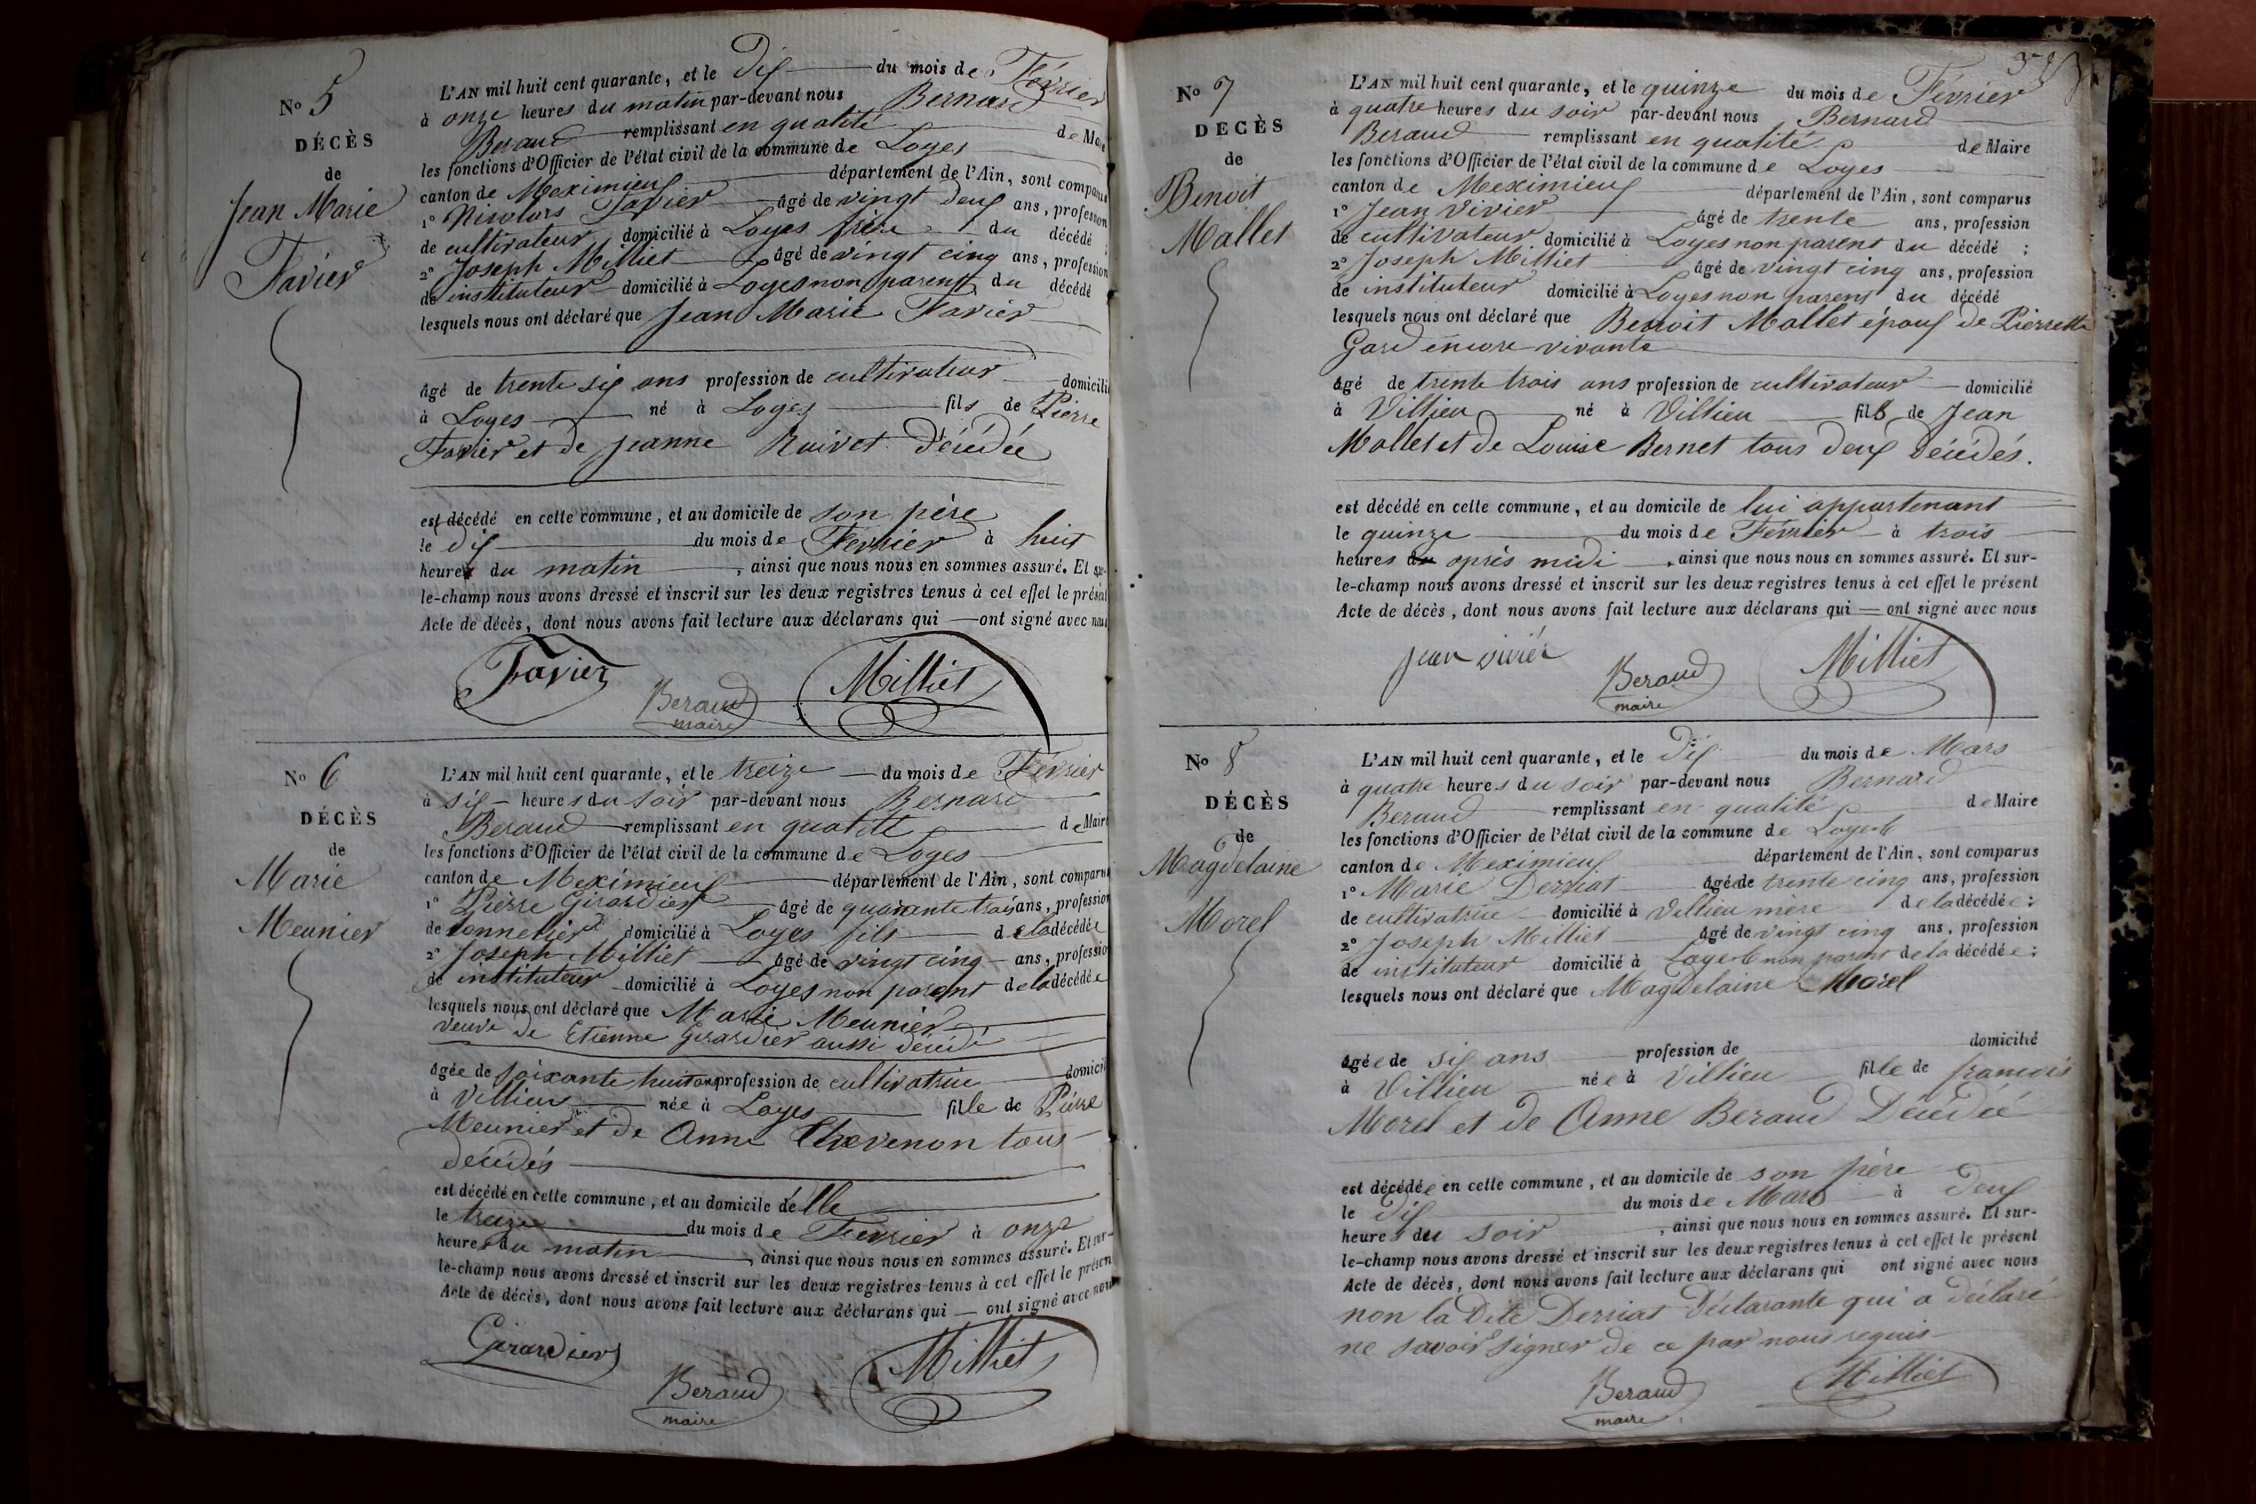 N° 5
DÉCÈS
de
Jean Marie
Favier
L'AN mil huit cent quarante, et le Dix du mois de Février
à onze heures du matin par-devant nous Bernard
Beraud remplissant en qualité de Maire
les fonctions d'Officier de l'état civil de la commune de Loyes
canton de Meximieux département de l'Ain, sont comparus
1° Nicolas Favier âgé de vingt deux ans, profession
de cultivateur domicilié à Loyes frère du décédé ;
2° Joseph Milliet âgé de vingt cinq ans, profession
de instituteur domicilié à Loyes non parent du décédé
lesquels nous ont déclaré que Jean Marie Favier
âgé de trente six ans profession de cultivateur domicilié
à Loyes né à Loyes fils de Pierre
Favier et de Jeanne Ruivet décédée
est décédé en cette commune, et au domicile de son père
le dix du mois de Fevrier à huit
heures du matin, ainsi que nous nous en sommes assuré. Et sur-
le-champ nous avons dressé et inscrit sur les deux registres tenus à cet effet le présent
Acte de décès, dont nous avons fait lecture aux déclarans qui ont signé avec nous
Favier
Beraud
maire
Milliet
N° 6
DÉCÈS
de
Marie
Meunier
L'AN mil huit cent quarante, et le treize du mois de Février
à six heures du soir par-devant nous Bernard
Beraud remplissant en qualité de Maire
les fonctions d'Officier de l'état civil de la commune de Loyes
canton de Meximieux département de l'Ain, sont comparus
1° Pierre Girardier âgé de quarante trois ans, profession
de tonnelier domicilié à Loyes fils de la décédée
2° Joseph Milliet âgé de vingt cinq ans, profession
de instituteur domicilié à Loyes non parent de la décédée
lesquels nous ont déclaré que Marie Meunier
veuve de Etienne Girardier aussi décédé
âgée de soixante huit ans profession de cultivatrice domicilié
à Villieux née à Loyes fille de Pierre
Meunier et de Anne Thevenon tous
décédés
est décédé en cette commune, et au domicile d'elle
le treize du mois de Fevrier à onze
heures du matin, ainsi que nous nous en sommes assuré. Et sur-
le-champ nous avons dressé et inscrit sur les deux registres tenus à cet effet le présent
Acte de décès, dont nous avons fait lecture aux déclarans qui ont signé avec nous
Girardier
Beraud
maire
Milliet
N° 7
DÉCÈS
de
Benoit
Mallet
L'AN mil huit cent quarante, et le quinze du mois de Février
à quatre heures du soir par-devant nous Bernard
Beraud remplissant en qualité de Maire
les fonctions d'Officier de l'état civil de la commune de Loyes
canton de Meximieux département de l'Ain, sont comparus
1° Jean Vivier âgé de trente ans, profession
de cultivateur domicilié à Loyes non parent du décédé ;
2° Joseph Milliet âgé de vingt cinq ans, profession
de instituteur domicilié à Loyes non parent du décédé
lesquels nous ont déclaré que Benoit Mallet époux de Pierrette
Gard encore vivante
âgé de trente trois ans profession de cultivateur domicilié
à Villieu né à Villieu fils de Jean
Mallet et de Louise Bernet tous deux décédés.
est décédé en cette commune, et au domicile de lui appartenant
le quinze du mois de Février à trois
heures du après midi, ainsi que nous nous en sommes assuré. Et sur-
le-champ nous avons dressé et inscrit sur les deux registres tenus à cet effet le présent
Acte de décès, dont nous avons fait lecture aux déclarans qui ont signé avec nous
jean vivier
Beraud
maire
Milliet
N° 8
DÉCÈS
de
Magdelaine
Morel
L'AN mil huit cent quarante, et le Dix du mois de Mars
à quatre heures du soir par-devant nous Bernard
Beraud remplissant en qualité de Maire
les fonctions d'Officier de l'état civil de la commune de Loyes
canton de Meximieux département de l'Ain, sont comparus
1° Marie Derriat âgée de trente cinq ans, profession
de cultivatrice domicilié à Villieu mère de la décédée ;
2° Joseph Milliet âgé de vingt cinq ans, profession
de instituteur domicilié à Loyes non parent de la décédée ;
lesquels nous ont déclaré que Magdelaine Morel
agée de six ans profession de domicilié
à Villieu née à Villieu fille de francois
Morel et de Anne Beraud Décédée
est décédée en cette commune, et au domicile de son père
le Dix du mois de Mars à deux
heures du soir, ainsi que nous nous en sommes assuré. Et sur-
le-champ nous avons dressé et inscrit sur les deux registres tenus à cet effet le présent
Acte de décès, dont nous avons fait lecture aux déclarans qui ont signé avec nous
non la Dite Derriat Déclarante qui a déclaré
ne savoir signer de ce par nous requis
Beraud
maire
Milliet